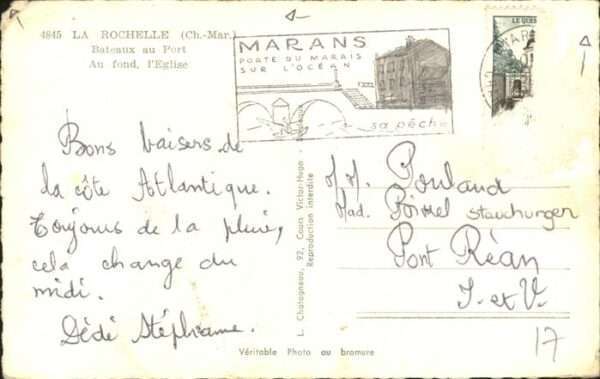 4845 LA ROCHELLE (Ch-Mar.)
Bateaux au Port
Au fond, l'Eglise
MARANS
PORTE DU MARAIS
SUR L'OCÉAN
sa pêche
LE QUES
MAR
Bons baisers de
la côte Atlantique.
Toujours de la pluie,
cela change du
midi.
Dédé Stéphane.
L. Chatagneau, 92, Cours Victor-Hugo
Reproduction interdite
M. M. Pouland
Mad.
Pont Réan
I. et V.
17
Véritable Photo au bromure